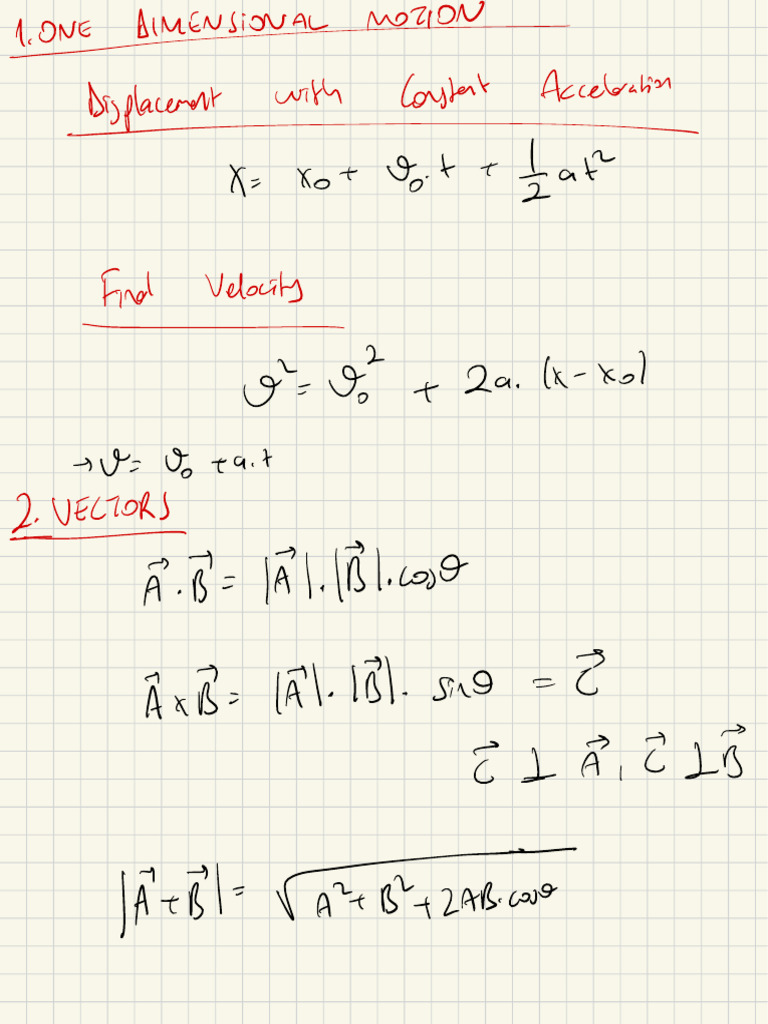 1. ONE DIMENSIONAL MOTION
Displacement with Constant Acceleration
x = x₀ + ϑ₀.t + 1/2 at²
Find Velocity
ϑ² = ϑ₀² + 2a. (x - x₀)
→ ϑ = ϑ₀ + a.t
2. VECTORS
A⃗ . B⃗ = |A⃗| . |B⃗| . cosθ
A⃗ x B⃗ = |A⃗| . |B⃗| . sinθ = C⃗
C⃗ ⊥ A⃗, C⃗ ⊥ B⃗
|A⃗ + B⃗| = √(A² + B² + 2AB.cosθ)